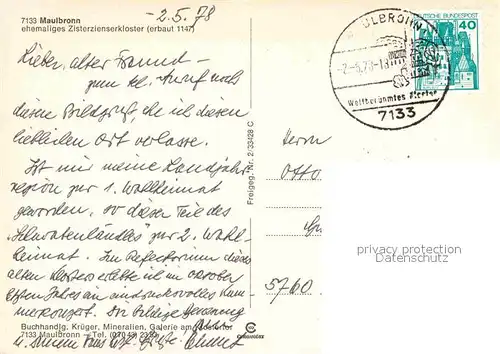 7133 Maulbronn
ehemaliges Zisterzienserkloster (erbaut 1147)
-2.5.78
Lieber, alter Freund -
zum tel. Anruf noch
diesen Bildgruß, ehe ich diesen
lieblichen Ort verlasse.
Ist mir meine Landjahr-
region zur 1. Wahlheimat
geworden, so dieser Teil des
zur 2. Wahl-
heimat. Im Refektorium dieses
alten Klosters erlebte ich im Oktober
letzten Jahres ein eindrucksvolles Kam-
merkonzert. Der
Buchhandlg. Krüger, Mineralien, Galerie am Klostertor
7133 Maulbronn - Tel. (07043)
Freigeg. Nr. 2/33428 C
MAULBRONN
-2.-5.78-18
Weltberühmtes Kloster
7133
DEUTSCHE BUNDESPOST
40
Herrn
Otto
5760
privacy protection
Datenschutz